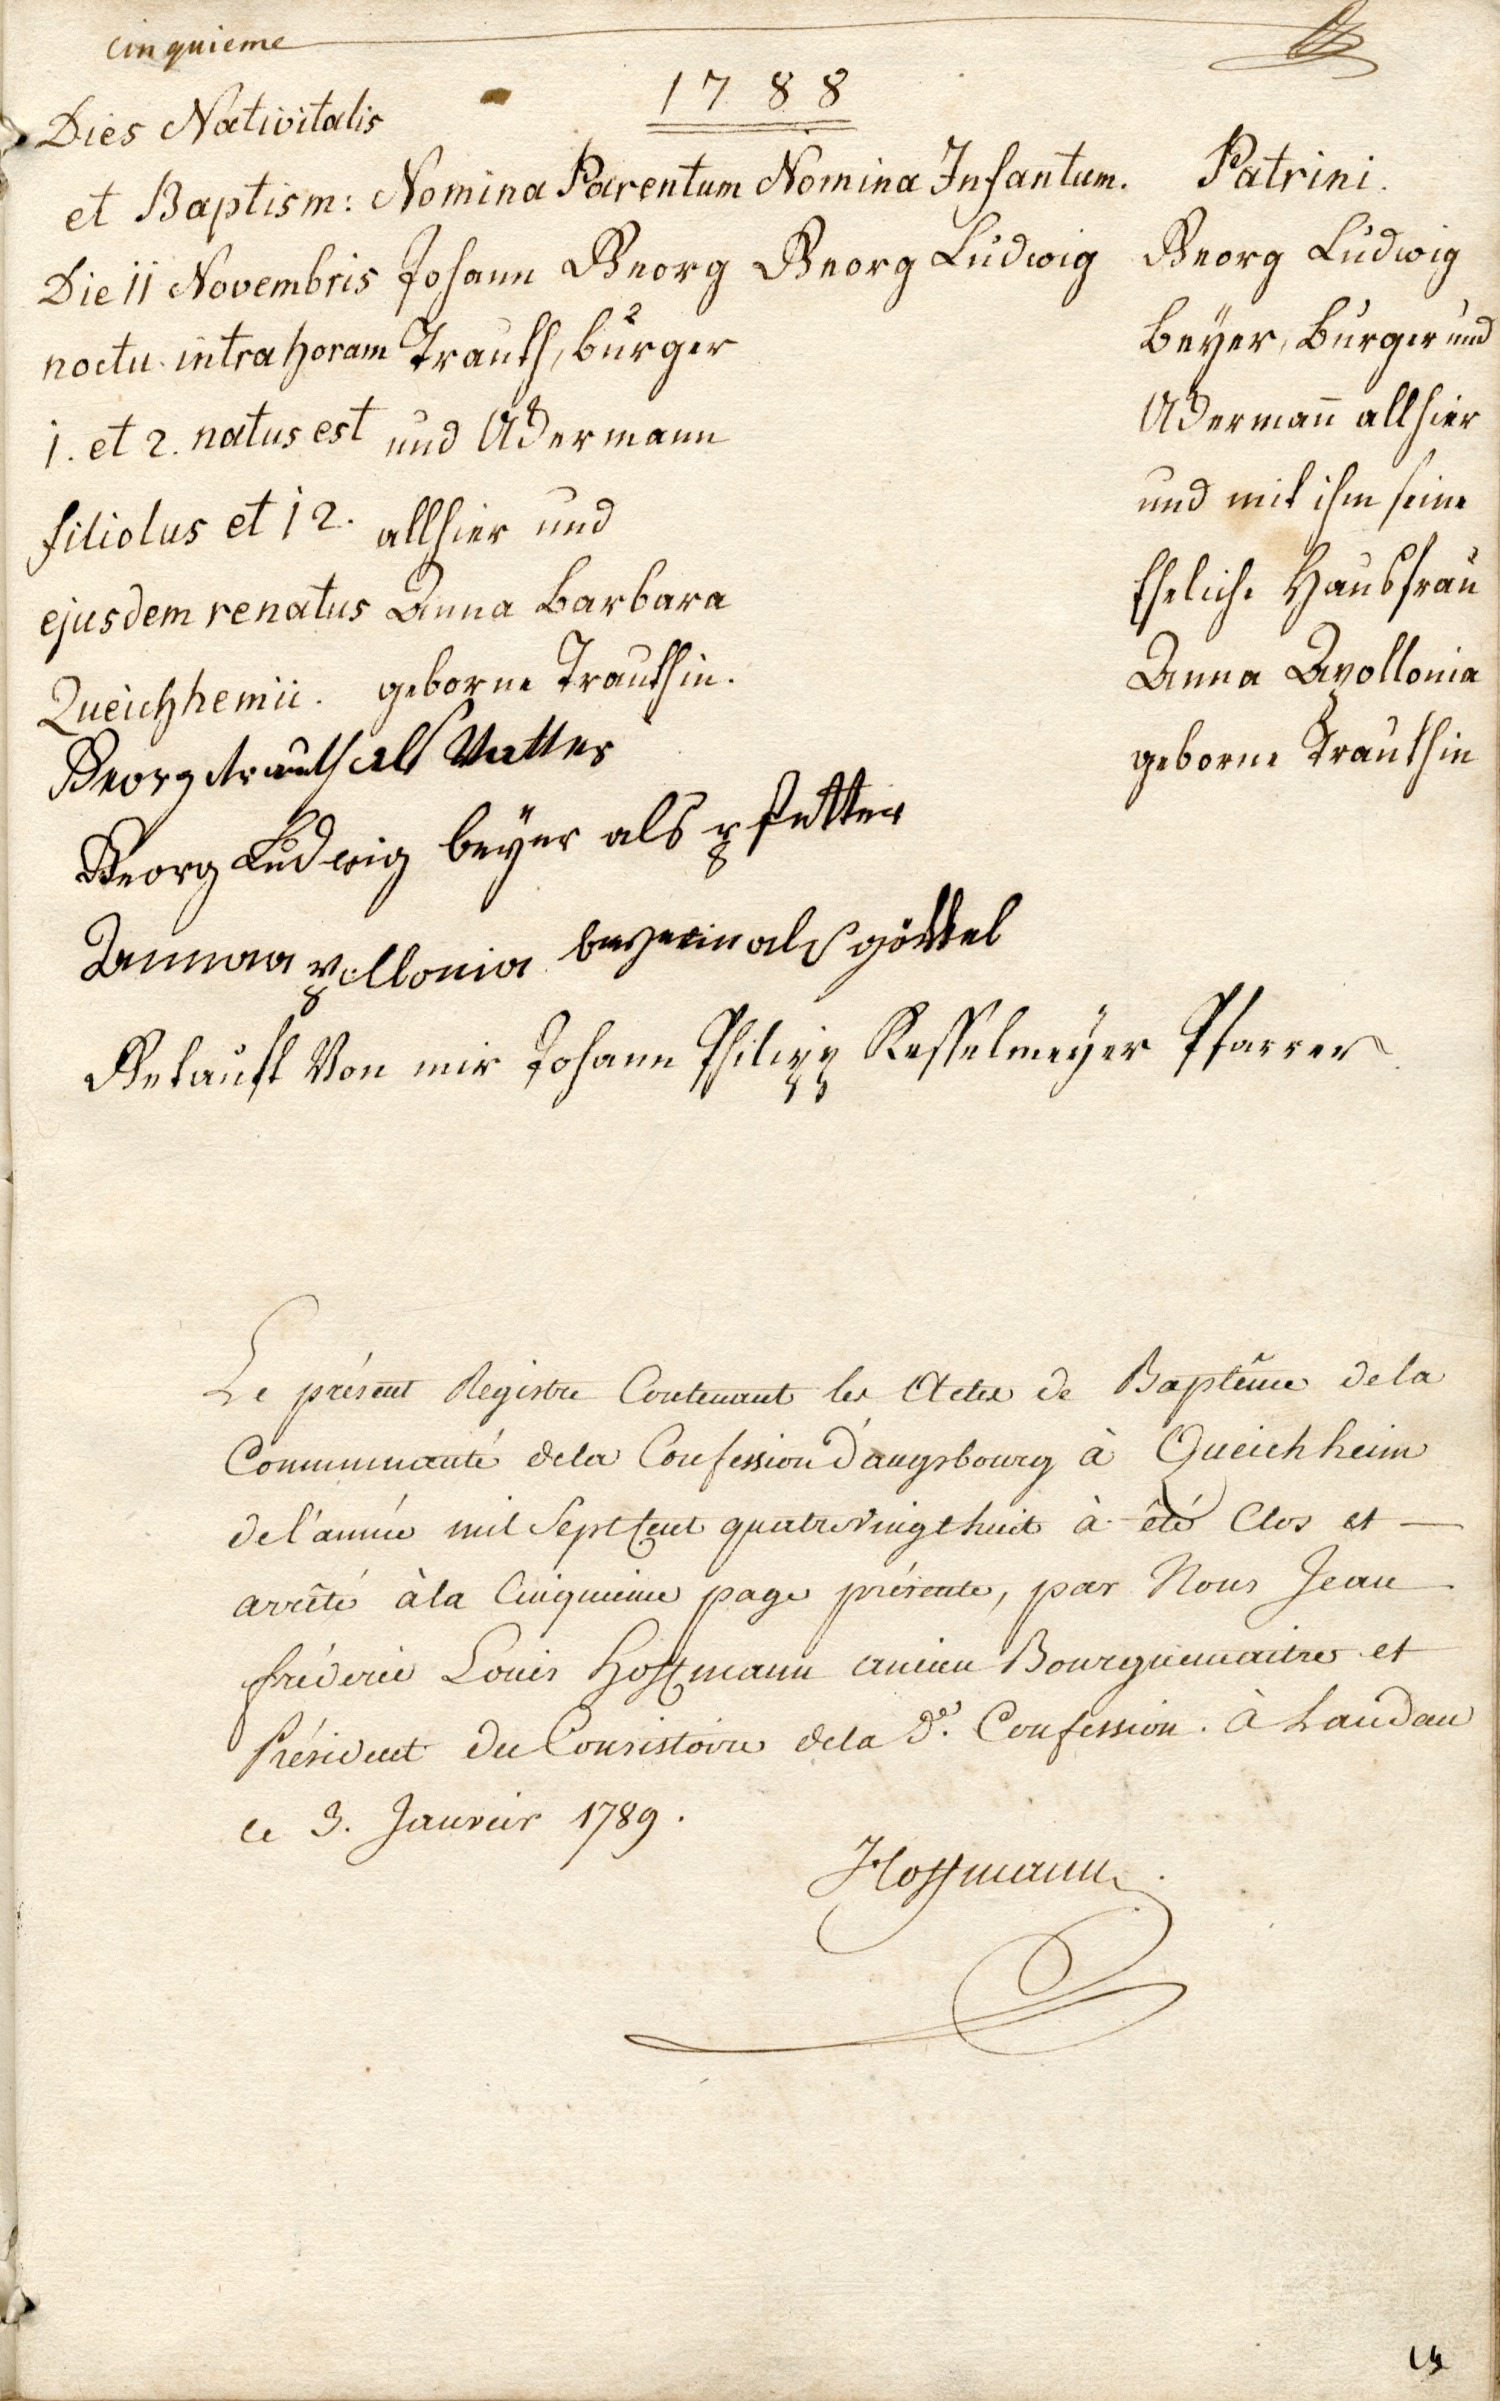 cinquieme
1788
Dies Nativitatis
et Baptism: Nomina Parentum Nomina Infantum. Patrini.
Die 11 Novembris
noctu intra horam
1. et 2. natus est
filiolus et 12.
ejusdem renatus
Queichhemii.
Johann Georg
Trauth, burger
und Ackermann
allhier und
Anna Barbara
geborne Trauthin.
Georg Ludwig
Georg Ludwig
Beÿer, Burger und
Ackermañ allhier
und mit ihm seine
Eheliche Hausfrau
Anna Apollonia
geborne Trauthin
Georg trauth als Vatter
Georg Ludwig beÿer als pfetter
Annaa pollonia beyerin als göttel
Getauft Von mir Johann Philipp Kesselmeÿer Pfarrer
Le présent Registre Contenant les Actes de Baptême dela
Communauté dela Confession d'augsbourg à Queichheim
de l'année mil Sept Cent quatrevingthuit à été Clos et
arrêté àla Cinquieme page présente, par Nous Jean
fréderic Louis Hoffmann ancien Bourguemaitre et
Président du Consistoire dela de. Confession. à Landau
ce 3. Janvier 1789.
Hoffmann